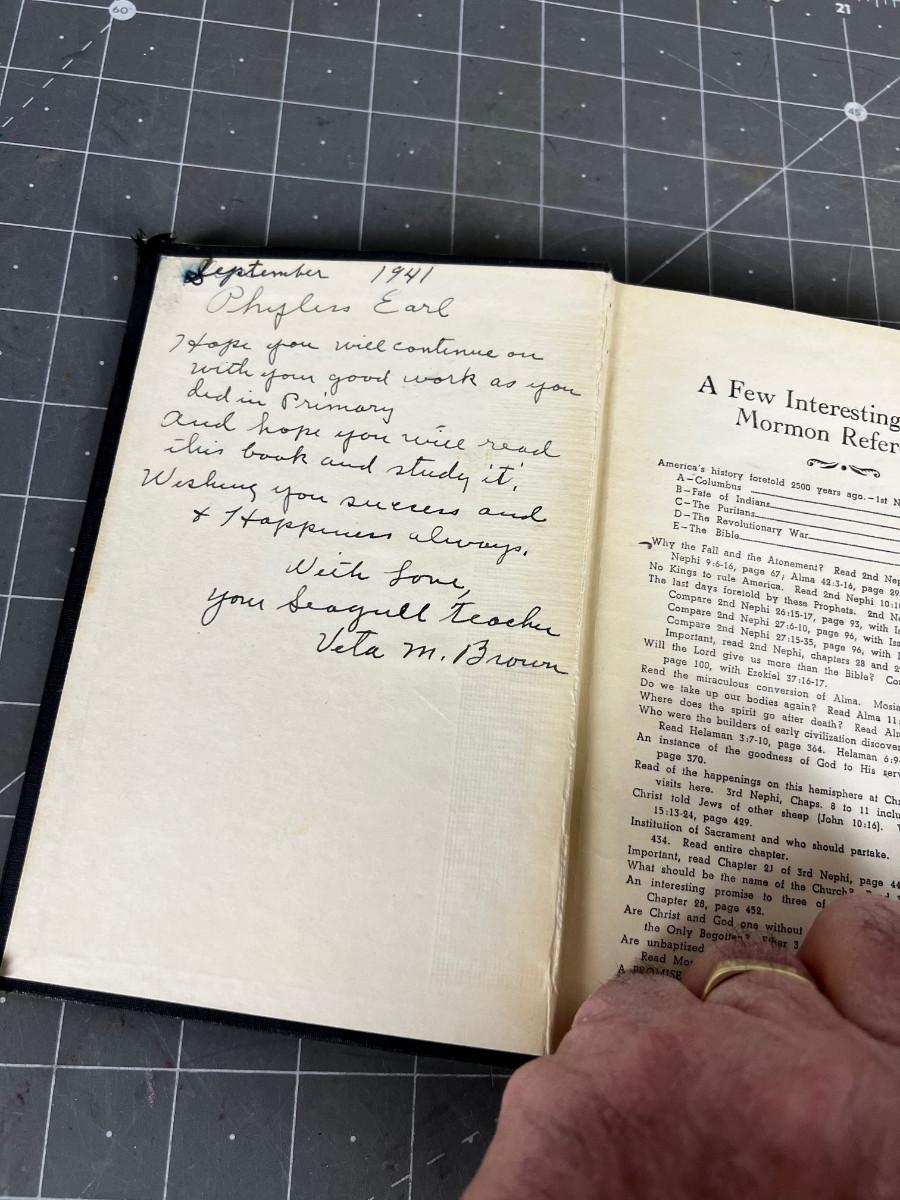 60°
21
45°
September 1941
Phyliss Earl
Hope you will continue on
with your good work as you
did in Primary
And hope you will read
this book and study it.
Wishing you success and
& Happiness always.
With Love,
your Seagull teacher
Veta M. Brown
A Few Interesting
Mormon Refer
America's history foretold 2500 years ago.—1st N
A—Columbus
B—Fate of Indians
C—The Puritans
D—The Revolutionary War
E—The Bible
Why the Fall and the Atonement? Read 2nd Nep
Nephi 9:6-16, page 67; Alma 42:3-16, page 29
No Kings to rule America. Read 2nd Nephi 10:1
The last days foretold by these Prophets. 2nd Ne
Compare 2nd Nephi 26:15-17, page 93, with Is
Compare 2nd Nephi 27:6-10, page 96, with Isa
Compare 2nd Nephi 27:15-35, page 96, with I
Important, read 2nd Nephi, chapters 28 and 2
Will the Lord give us more than the Bible? Co
page 100, with Ezekiel 37:16-17.
Read the miraculous conversion of Alma. Mosia
Do we take up our bodies again? Read Alma 11:
Where does the spirit go after death? Read Alm
Who were the builders of early civilization discover
Read Helaman 3:7-10, page 364. Helaman 6:9-
An instance of the goodness of God to His serv
page 370.
Read of the happenings on this hemisphere at Chr
visits here. 3rd Nephi, Chaps. 8 to 11 inclu
Christ told Jews of other sheep (John 10:16).
15:13-24, page 429.
Institution of Sacrament and who should partake.
434. Read entire chapter.
Important, read Chapter 21 of 3rd Nephi, page 44
What should be the name of the Church?
An interesting promise to three of
Chapter 28, page 452.
Are Christ and God one without
the Only Begotten? Ether 3
Are unbaptized
Read Mo
A PROMISE